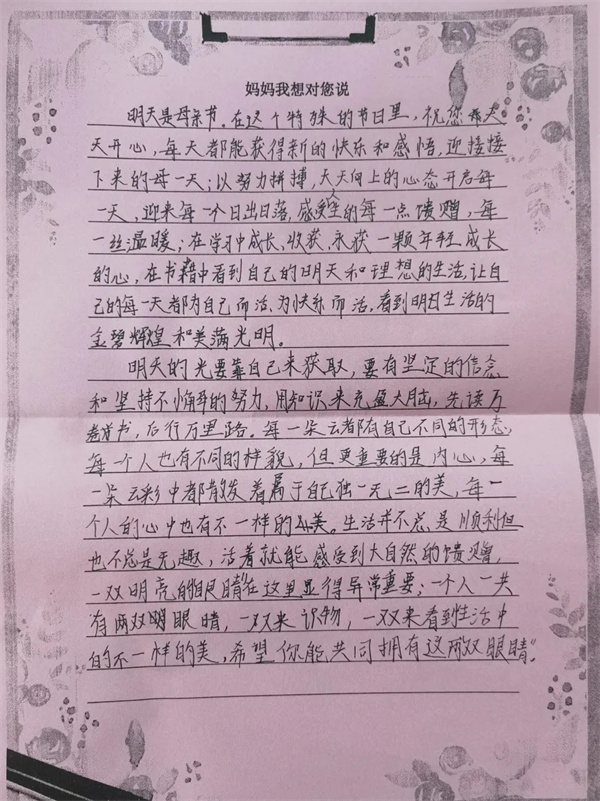 妈妈我想对您说
明天是母亲节，在这个特殊的节日里，祝您天天
开心，每天都能获得新的快乐和感悟，迎接接
下来的每一天；以努力拼搏，天天向上的心态开启每
一天，迎来每一个日出日落，感受人生的每一点馈赠，每
一丝温暖；在学习中成长、收获，永获一颗年轻成长
的心，在书籍中看到自己的明天和理想的生活，让自
己的每一天都为自己而活、为快乐而活，看到明日生活的
金碧辉煌和美满光明。
明天的光要靠自己来获取，要有坚定的信念
和坚持不懈的努力，用知识来充盈大脑，先读万
卷书，后行万里路。每一朵云都有自己不同的形态，
每一个人也有不同的样貌，但更重要的是内心，每
一朵云彩中都散发着属于自己独一无二的美，每一
个人的心中也有不一样的美。生活并不总是顺利但
也不总是无趣，活着就能感受到大自然的馈赠，
一双明亮的"眼睛"在这里显得异常重要；一个人一共
有两双明眼睛，一双来识物，一双来看到生活中
的不一样的美，希望你能共同拥有这两双眼睛"。